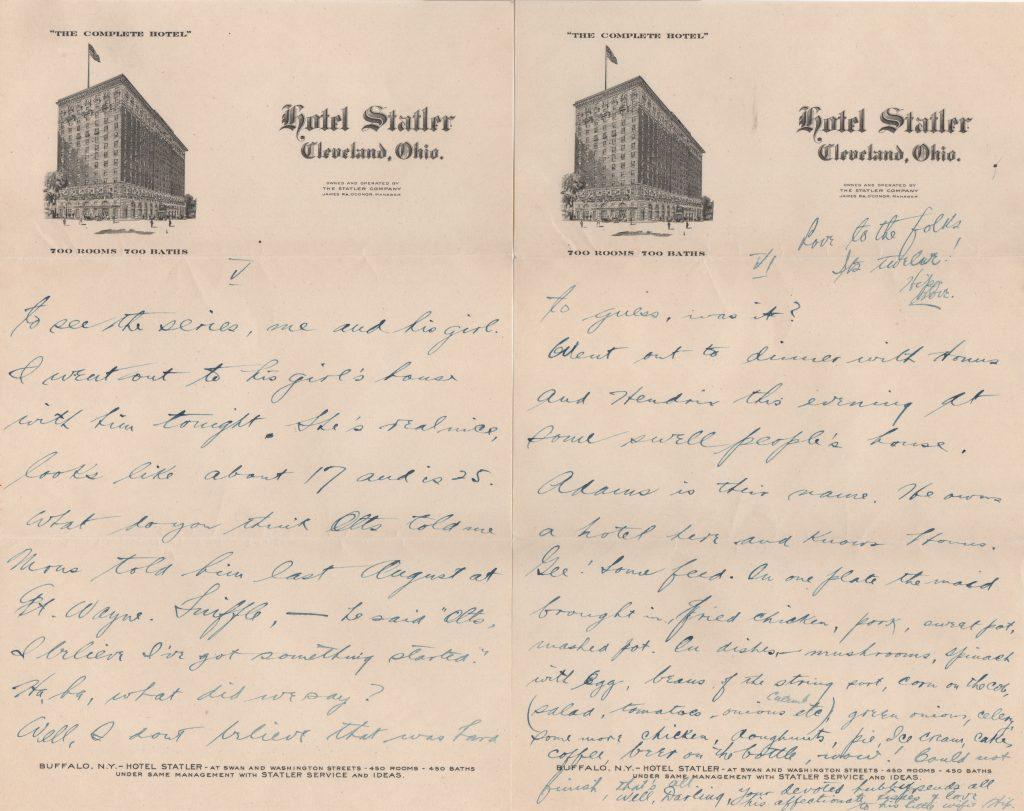 "THE COMPLETE HOTEL"
Hotel Statler
Cleveland, Ohio.
OWNED AND OPERATED BY
THE STATLER COMPANY
JAMES MANAGER
700 ROOMS 700 BATHS
V
to see the series, me and his girl.
I went out to his girl's house
with him tonight. She's real nice,
looks like about 17 and is 25.
What do you think Otts told me
Mons told him last August at
Ft. Wayne. Sniffle, — he said "Otts,
I believe I've got something started."
Ha, ha, what did we say?
Well, I dont believe that was hard
BUFFALO, N.Y.- HOTEL STATLER - AT SWAN AND WASHINGTON STREETS - 450 ROOMS - 450 BATHS
UNDER SAME MANAGEMENT WITH STATLER SERVICE AND IDEAS.
"THE COMPLETE HOTEL"
Hotel Statler
Cleveland, Ohio.
OWNED AND OPERATED BY
THE STATLER COMPANY
JAMES MANAGER
700 ROOMS 700 BATHS
Love to the folks
Its twelve!
VI
to guess, was it?
Went out to dinner with Honus
and Hendrix this evening at
some swell people's house.
Adams is their name. He owns
a hotel here and knows Honus.
Gee! Some feed. On one plate the maid
brought in, fried chicken, pork, sweet pot,
mashed pot. In dishes - mushrooms, spinach
with egg, beans of the string sort, corn on the cob,
(salad, tomatoes - onions etc), green onions, celery,
some more chicken, doughnuts, pie, Ice cream, cakes,
coffee, beer on the bottle, wow! Could not
BUFFALO, N.Y.- HOTEL STATLER - AT SWAN AND WASHINGTON STREETS - 450 ROOMS - 450 BATHS
UNDER SAME MANAGEMENT WITH STATLER SERVICE AND IDEAS.
finish, that's all.
Well, Darling, your devoted hubby sends all
his affectionate love